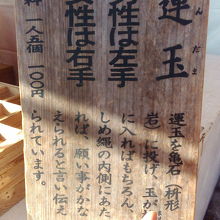 運玉
んだま
性は左手
性は右手
料 一人五個 100円
運玉を亀石(枡形
岩)に投げ、玉が
に入ればもちろん、
しめ縄の内側にあた
れば、願い事がかな
えられると言い伝え
られています。